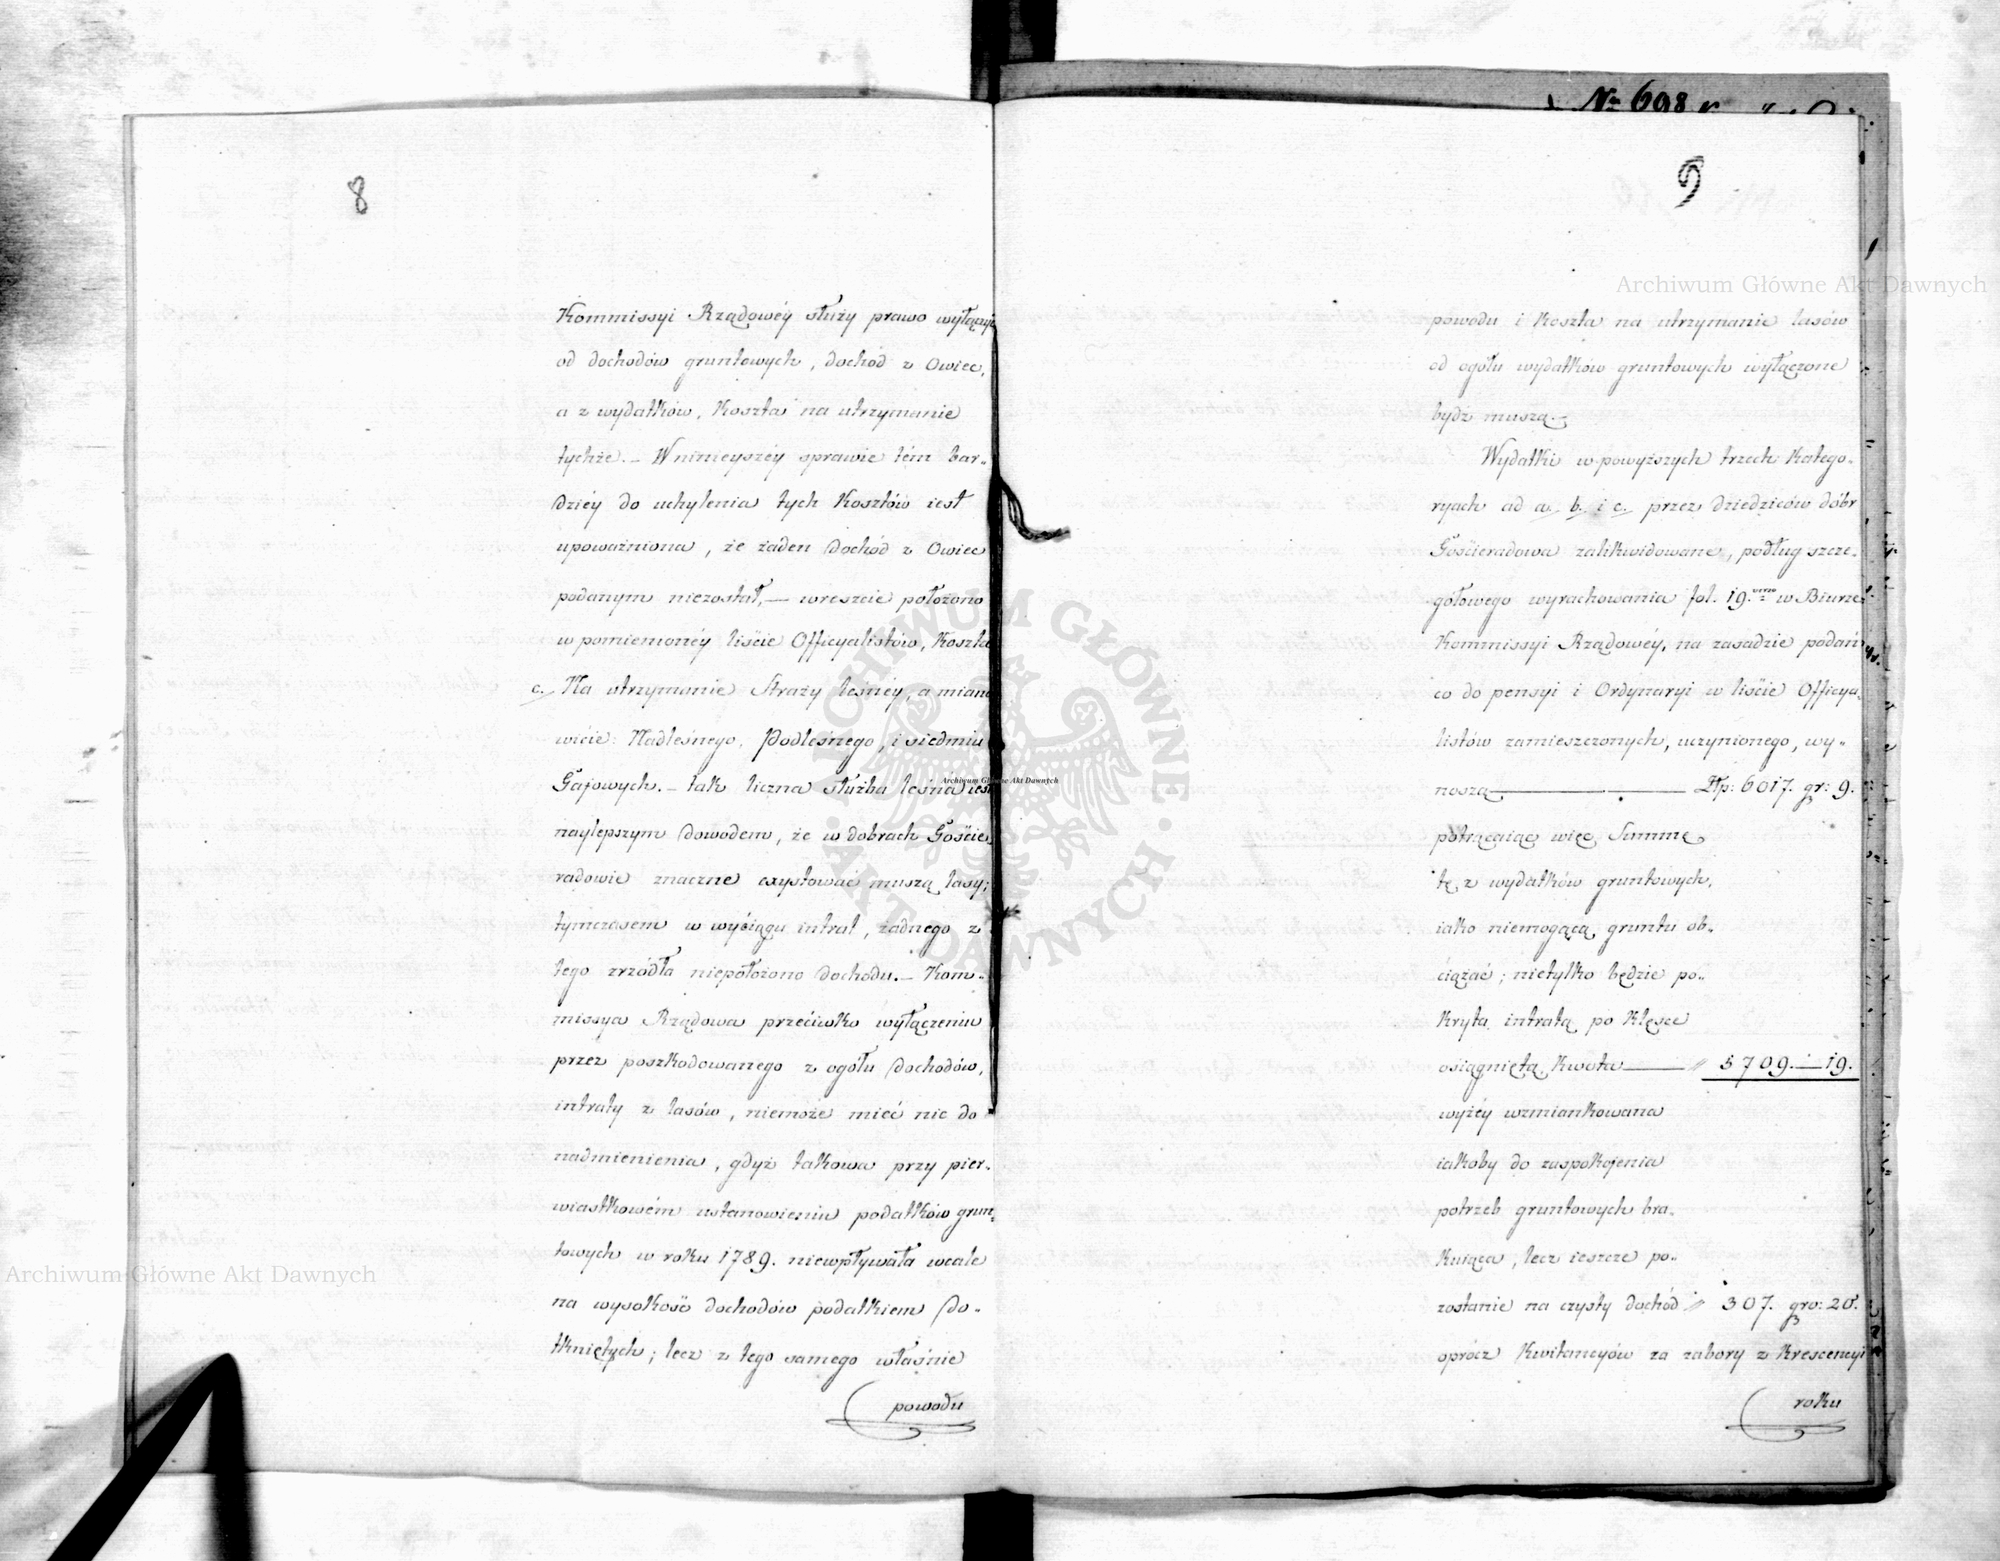 8
Kommissyi Rządowéy służy prawo wyłączyć
od dochodów gruntowych, dochód z Owiec,
a z wydatków, Koszta na utrzymanie
tychże. – W ninieyszéy sprawie tém bar-
dziéy do uchylenia tych Kosztów iest
upoważniona, że żaden dochód z Owiec
podanym niezostał, — wreszcie położono
w pomienionéy liście Officyalistów, Koszta
c. Na utrzymanie Straży leśnéy, a miano
wicie: Nadleśnego, Podleśnego, i siedmiu
Gajowych. – tak liczna służba leśna iest
naylepszym dowodem, że w dobrach Goście
radowie znaczne exystować muszą lasy;
tymczasem w wyciągu intrat, żadnego z
tego zrzódła niepołożono dochodu. – Kom-
missya Rządowa przeciwko wyłączeniu
przez poszkodowanego z ogółu dochodów,
intraty z lasów, niemoże mieć nic do
nadmienienia, gdyż takowa przy pier-
wiastkowém ustanowieniu podatków grun-
towych w roku 1789. niewpływała wcale
na wysokość dochodów podatkiem do-
tkniętych; lecz z tego samego właśnie
powodu
№ 698
9
powodu i Koszta na utrzymanie lasów
od ogółu wydatków gruntowych wyłączone
bydź muszą. –
Wydatki w powyższych trzech Katego-
ryach ad a. b. i c. przez dziedziców dóbr
Gościeradowa zalikwidowane, podług szcze-
gółowego wyrachowania fol. 19. verso w Biurze
Kommissyi Rządowéy, na zasadzie podań
co do pensyi i Ordynaryi w liście Officya-
listów zamieszczonych, uczynionego, wy-
noszą — Złp: 6017. gr: 9.
potrącaiąc więc Summę
tę z wydatków gruntowych,
iako niemogącą gruntu ob-
ciążać; nietylko będzie po-
kryta intratą po klęsce
osiągniętą Kwota — " 5709. — 19.
wyżéy wzmiankowana
iakoby do zaspokojenia
potrzeb gruntowych bra-
kuiąca, lecz ieszcze po-
zostanie na czysty dochód " 307. gro: 20.
oprócz Kwitancyów za zabory z Krescencyi
roku
Archiwum Główne Akt Dawnych
Archiwum Główne Akt Dawnych
Archiwum Główne Akt Dawnych
ARCHIWUM GŁÓWNE · AKT DAWNYCH ·